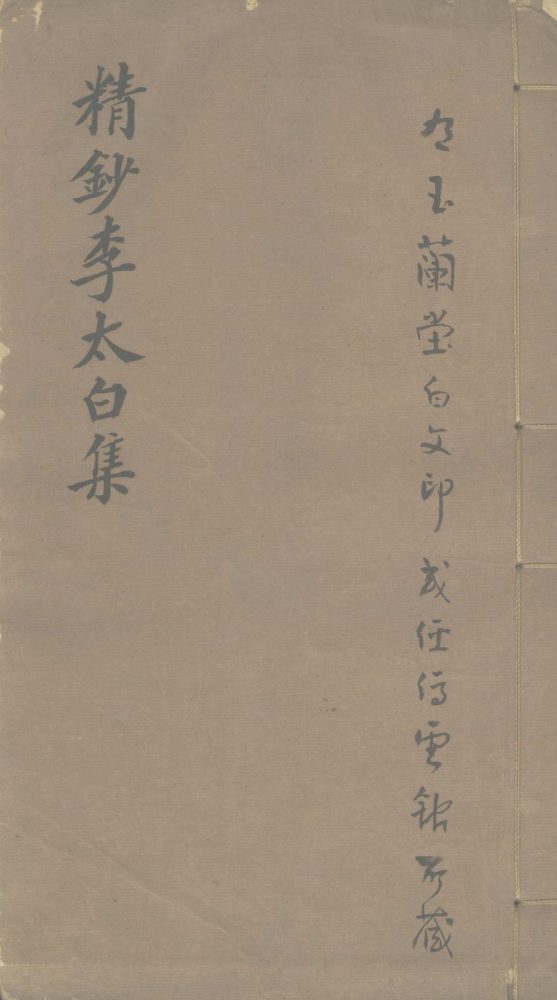 有玉蘭堂白文印或經停雲館所藏
精鈔李太白集